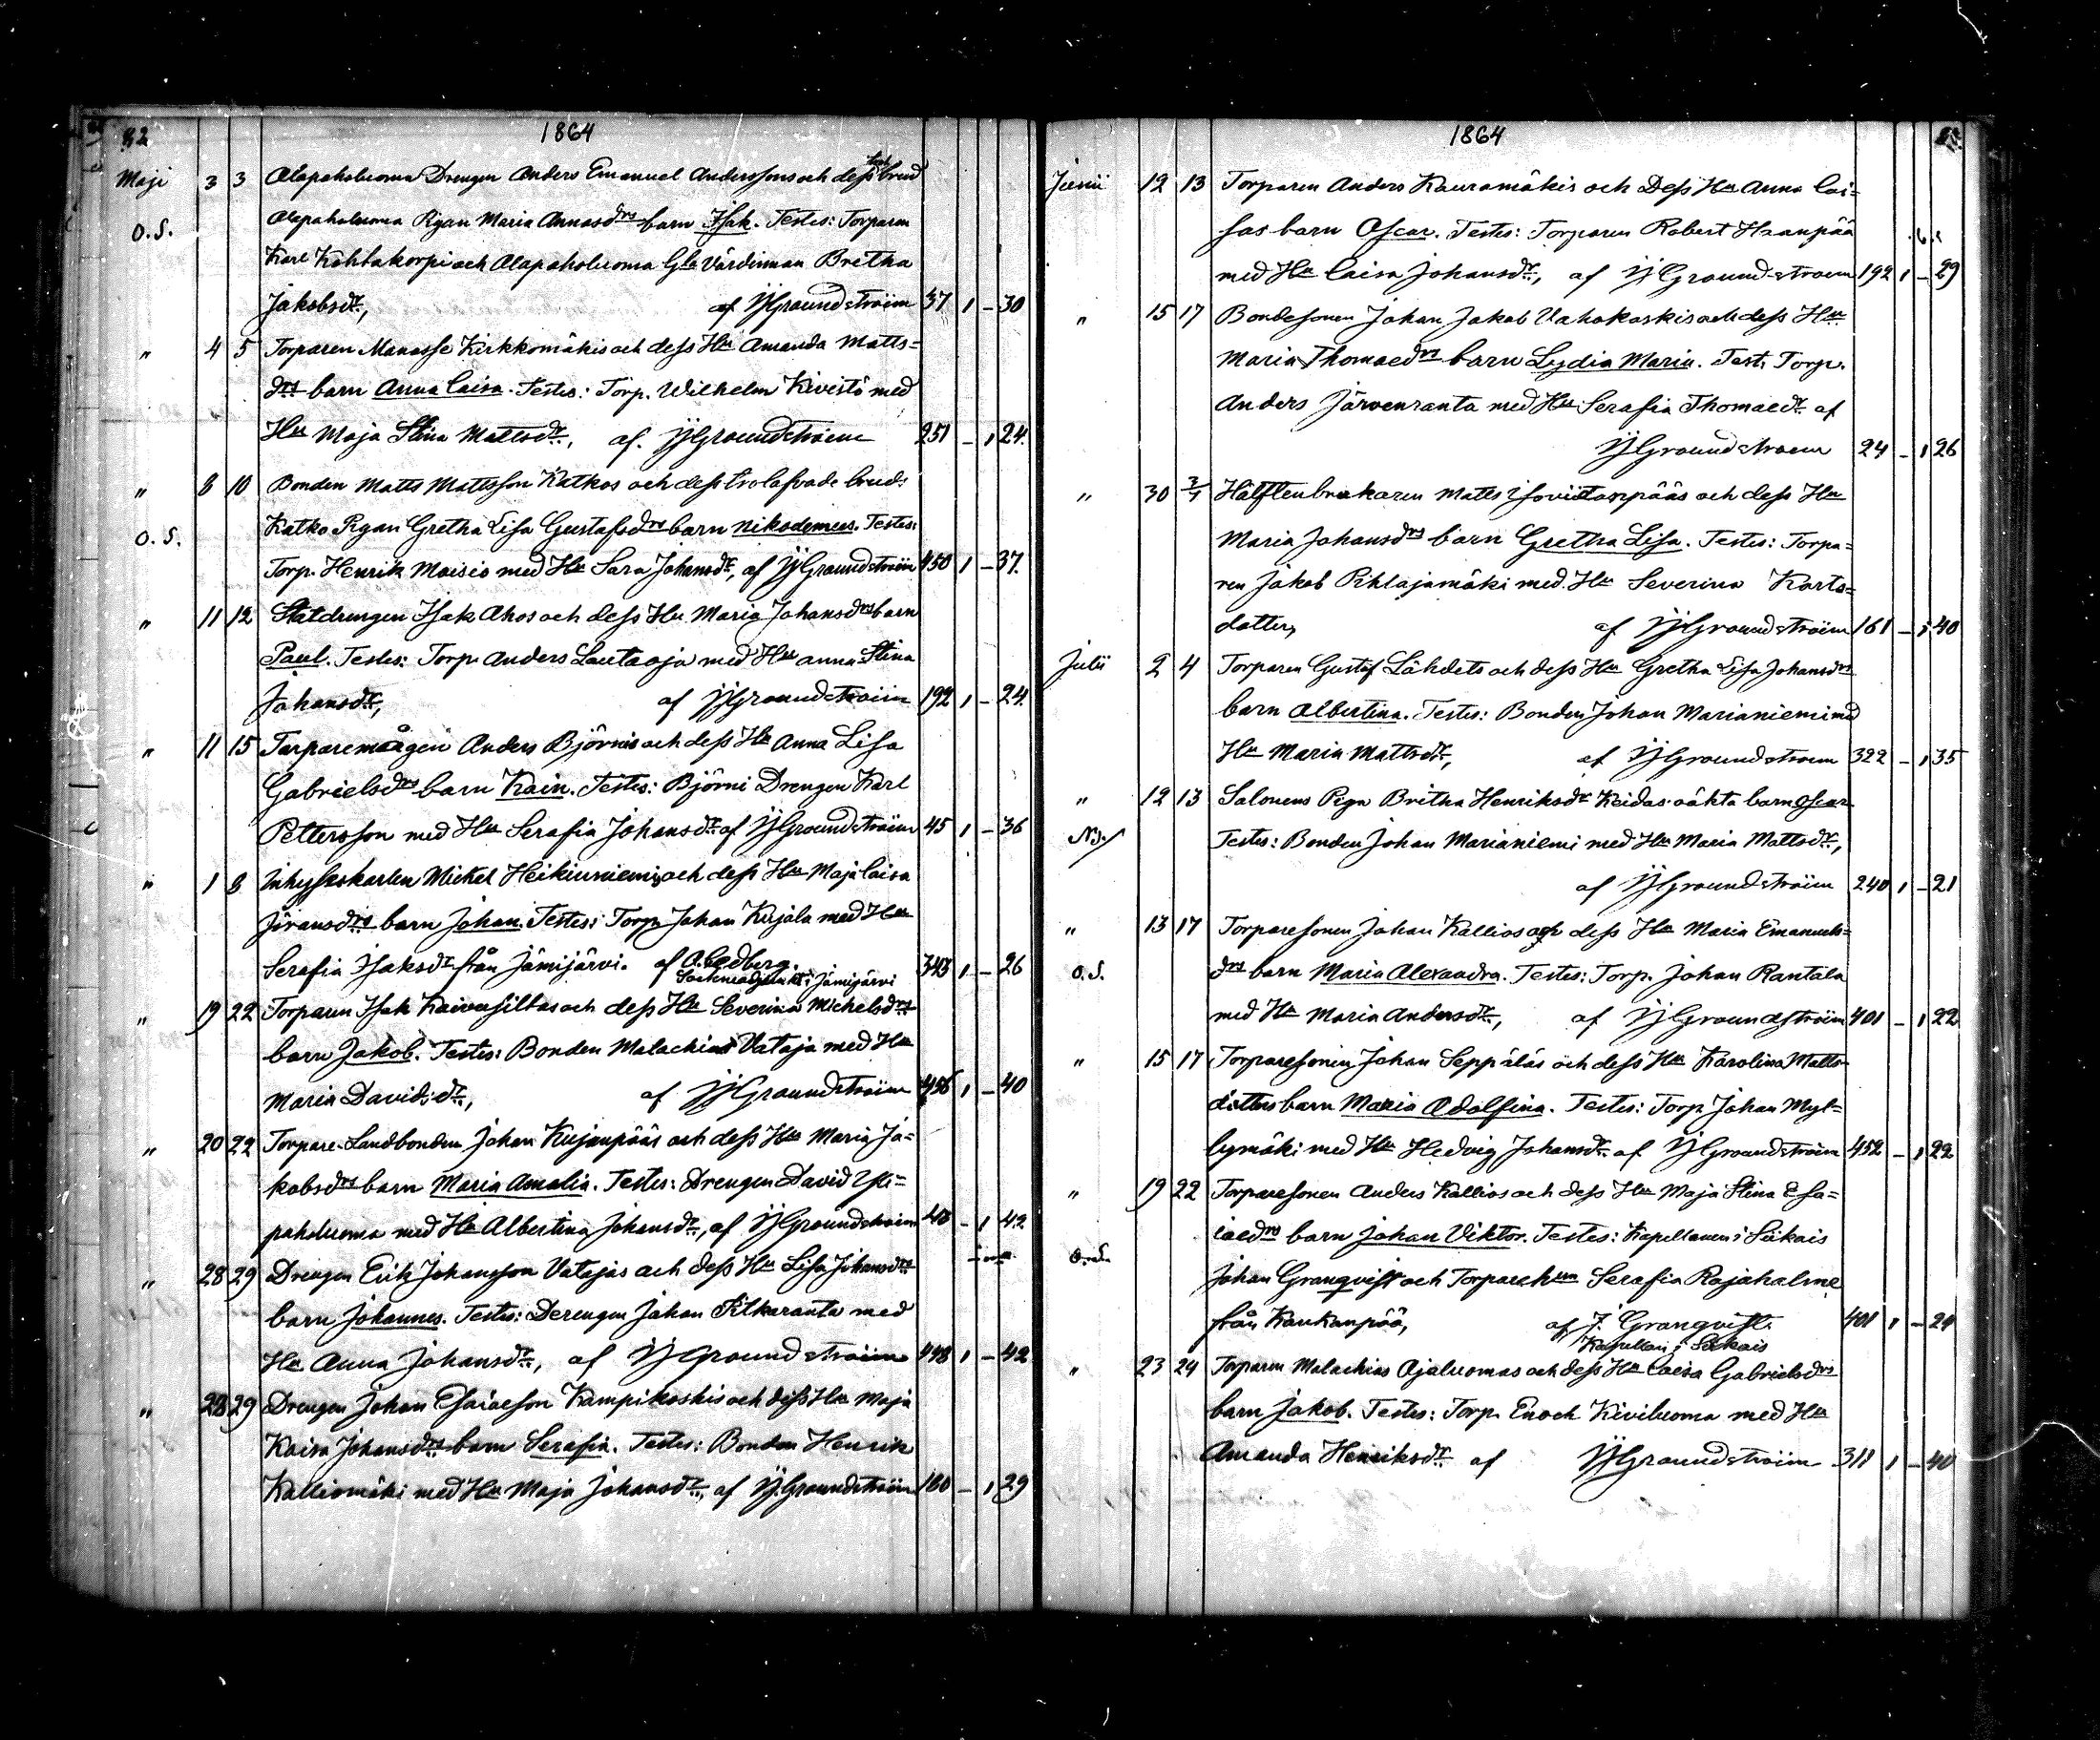 82
1864
Maji 3 3 Alapaholuoma Drengen Anders Emanuel Anderssons och dess brud
O.S. Alapaholuoma Pigan Maria Annasdrs barn Isak. Testes: Torparen
Karl Kohtakorpi och Alapaholuoma Gla Värdinnan Bretha
Jakobsdr, af Groundstroem 37 1 - 30
" 4 5 Torparen Manasse Kirkkomäkis och dess Hu Amanda Matts-
drs barn Anna Caisa. Testes: Torp. Wilhelm Kivistö med
Hu Maja Stina Mattsdr, af Groundstroem 251 - 1 24.
" 8 10 Bonden Matts Mattsson Katkos och dess trolofvade brud:
O.S. Katko Pigan Gretha Lisa Gustafsdrs barn Nikodemus. Testes:
Torp. Henrik Moisio med Hu Sara Johansdr, af Groundstroem 450 1 - 37.
" 11 12 Statdrengen Isak Ahos och dess Hu Maria Johansdrs barn
Paul. Testes: Torp. Anders Lautaoja med Hu Anna Stina
Johansdr, af Groundstroem 192 1 - 24.
" 11 15 Torparemågen Anders Björnis och dess Hu Anna Lisa
Gabrielsdrs barn Kain. Testes: Björni Drengen Karl
Pettersson med Hu Serafia Johansdr af Groundstroem 45 1 - 36
" 1 8 Inhyseskarlen Mickel Heikiniemis och dess Hu Maja Caisa
Jöransdrs barn Johan. Testes: Torp. Johan Kujala med Hu
Serafia Isaksdr från Jämijärvi. af A. Cedberg. 343 1 - 26
Sockneadjunkt i Jämijärvi
" 19 22 Torparen Isak Kaivosiltas och dess Hu Severina Michelsdrs
barn Jakob. Testes: Bonden Malachias Vataja med Hu
Maria Davidsdr, af Groundstroem 456 1 - 40
" 20 22 Torpare-Landbonden Johan Kujanpääs och dess Hu Maria Ja-
kobsdrs barn Maria Amalia. Testes: Drengen David Yli-
paholuoma med Hu Albertina Johansdr, af Groundstroem 48 - 1 42
" 28 29 Drengen Erik Johansson Vatajas och dess Hu Lisa Johansdrs
barn Johannes. Testes: Drengen Johan Pitkaranta med
Hu Anna Johansdr, af Groundstroem 448 1 - 42
" 28 29 Drengen Johan Esaiaeson Kampikoskis och dess Hu Maja
Kaisa Johansdrs barn Serafia. Testes: Bonden Henrik
Kalliomäki med Hu Maja Johansdr, af Groundstroem 160 - 1 29
1864
Junii 12 13 Torparen Anders Kauramäkis och Dess Hu Anna Cai-
sas barn Oscar. Testes: Torparen Robert Haanpää
med Hu Caisa Johansdr, af Groundstroem 192 1 - 29
" 15 17 Bondesonen Johan Jakob Vahokoskis och dess Hu
Maria Thomaedrs barn Lydia Maria. Test: Torp.
Anders Järvenranta med Hu Serafia Thomaedr af
Groundstroem 24 - 1 26
" 30 3/7 Hälftenbrukaren Matts Isoviitanpääs och dess Hu
Maria Johansdrs barn Gretha Lisa. Testes: Torpa-
ren Jakob Pihlajamäki med Hu Severina Karls-
dotter, af Groundstroem 161 - 1 40
Julii 2 4 Torparen Gustaf Lähdets och dess Hu Gretha Lisa Johansdrs
barn Albertina. Testes: Bonden Johan Marianiemi med
Hu Maria Mattsdr, af Groundstroem 322 - 1 35
" 12 13 Salonens Pigan Britha Henriksdr Keidas oäkta barn Oscar
Testes: Bonden Johan Marianiemi med Hu Maria Mattsdr,
af Groundstroem 240 1 - 21
" 13 17 Torparesonen Johan Kallios och dess Hu Maria Emanuels-
O.S. drs barn Maria Alexandra. Testes: Torp. Johan Rantala
med Hu Maria Andersdr, af Groundstroem 401 - 1 22
" 15 17 Torparesonen Johan Seppäläs och dess Hu Karolina Matts-
dotters barn Maria Adolfina. Testes: Torp. Johan Myl-
lymäki med Hu Hedvig Johansdr af Groundstroem 452 - 1 22
" 19 22 Torparesonen Anders Kallios och dess Hu Maja Stina Esa-
iaedrs barn Johan Viktor. Testes: Kapellanen i Siikais
O.S. Johan Granqvist och Torparehun Serafia Rajahalme
från Kankanpää, af J. Granqvist. 401 1 - 24
Kapellan i Siikais
" 23 24 Torparen Malachias Ojaluomas och dess Hu Caisa Gabrielsdrs
barn Jakob. Testes: Torp. Enoch Kiviluoma med Hu
Amanda Henriksdr af Groundstroem 311 1 - 40